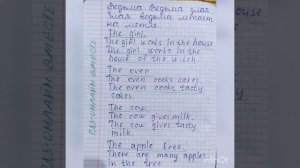 Ведьма Ведьма злая
Злая ведьма летает
на метле
The girl.
The girl works in the house
The girl works in the
house of the witch
The oven
The oven cooks cakes
The oven cooks tasty
cakes.
The cow.
The cow gives milk.
The cow gives tasty
milk.
The apple tree.
There are many apples
in the tree